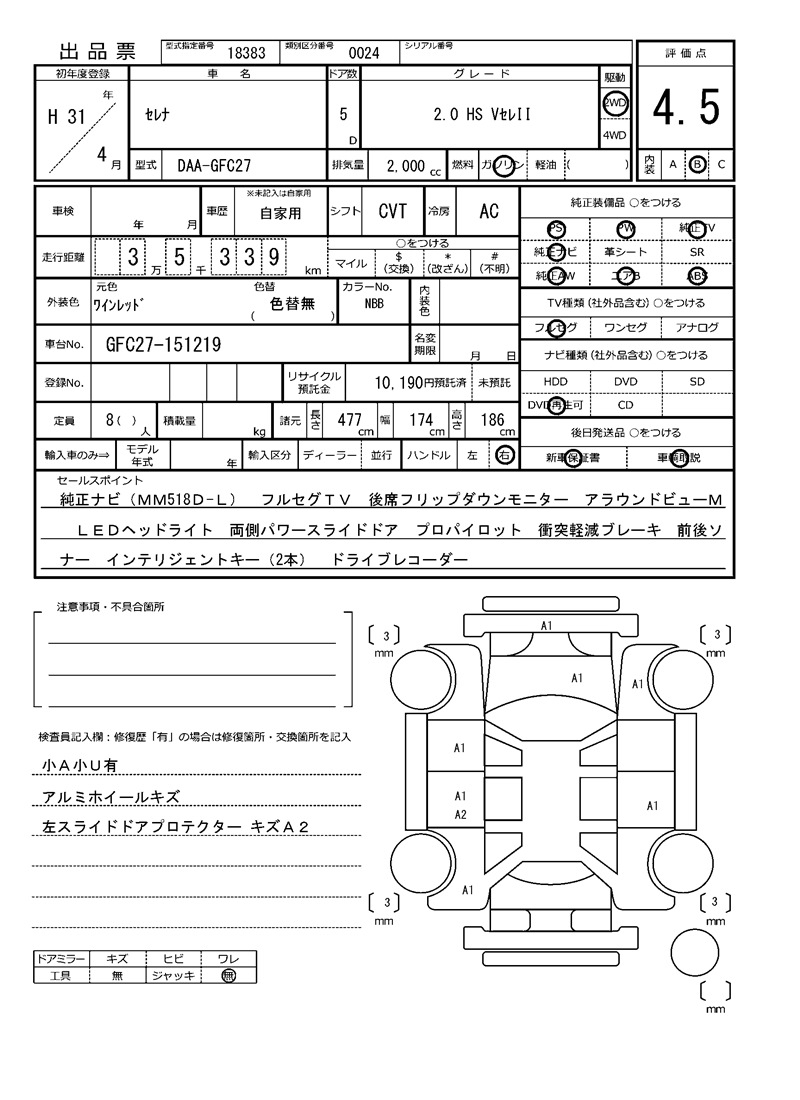 出品票 型式指定番号 18383 類別区分番号 0024 シリアル番号 評価点
初年度登録 車名 ドア数 グレード 駆動
H 31 年 4 月 セレナ 5 D 2.0 HS VセレII 2WD 4WD 4.5
型式 DAA-GFC27 排気量 2.000 cc 燃料 ガソリン 軽油 ( ) 内装 A B C
車検 年 月 車歴 ※未記入は自家用 自家用 シフト CVT 冷房 AC
走行距離 3 万 5 千 3 3 9 km ○をつける マイル $ (交換) * (改ざん) # (不明)
外装色 元色 ワインレッド 色替 ( 色替無 ) カラーNo. NBB 内装色
車台No. GFC27-151219 名変期限 月 日
登録No. リサイクル預託金 10,190円預託済 未預託
定員 8( ) 人 積載量 kg 諸元 長さ 477 cm 幅 174 cm 高さ 186 cm
輸入車のみ⇒ モデル年式 年 輸入区分 ディーラー 並行 ハンドル 左 右
純正装備品 ○をつける
PS PW 純正TV
純正ナビ 革シート SR
純正AW エアB ABS
TV種類(社外品含む)○をつける
フルセグ ワンセグ アナログ
ナビ種類(社外品含む)○をつける
HDD DVD SD
DVD再生可 CD
後日発送品 ○をつける
新車保証書 車輌取説
セールスポイント
純正ナビ(MM518D-L) フルセグTV 後席フリップダウンモニター アラウンドビューM
LEDヘッドライト 両側パワースライドドア プロパイロット 衝突軽減ブレーキ 前後ソ
ナー インテリジェントキー(2本) ドライブレコーダー
注意事項・不具合箇所
検査員記入欄:修復歴「有」の場合は修復箇所・交換箇所を記入
小A小U有
アルミホイールキズ
左スライドドアプロテクター キズA2
ドアミラー キズ ヒビ ワレ
工具 無 ジャッキ 無
A1
〔 3 〕 mm 〔 3 〕 mm
A1
A1
A1
A1
A2
A1
A1
〔 3 〕 mm 〔 3 〕 mm
〔 〕 mm